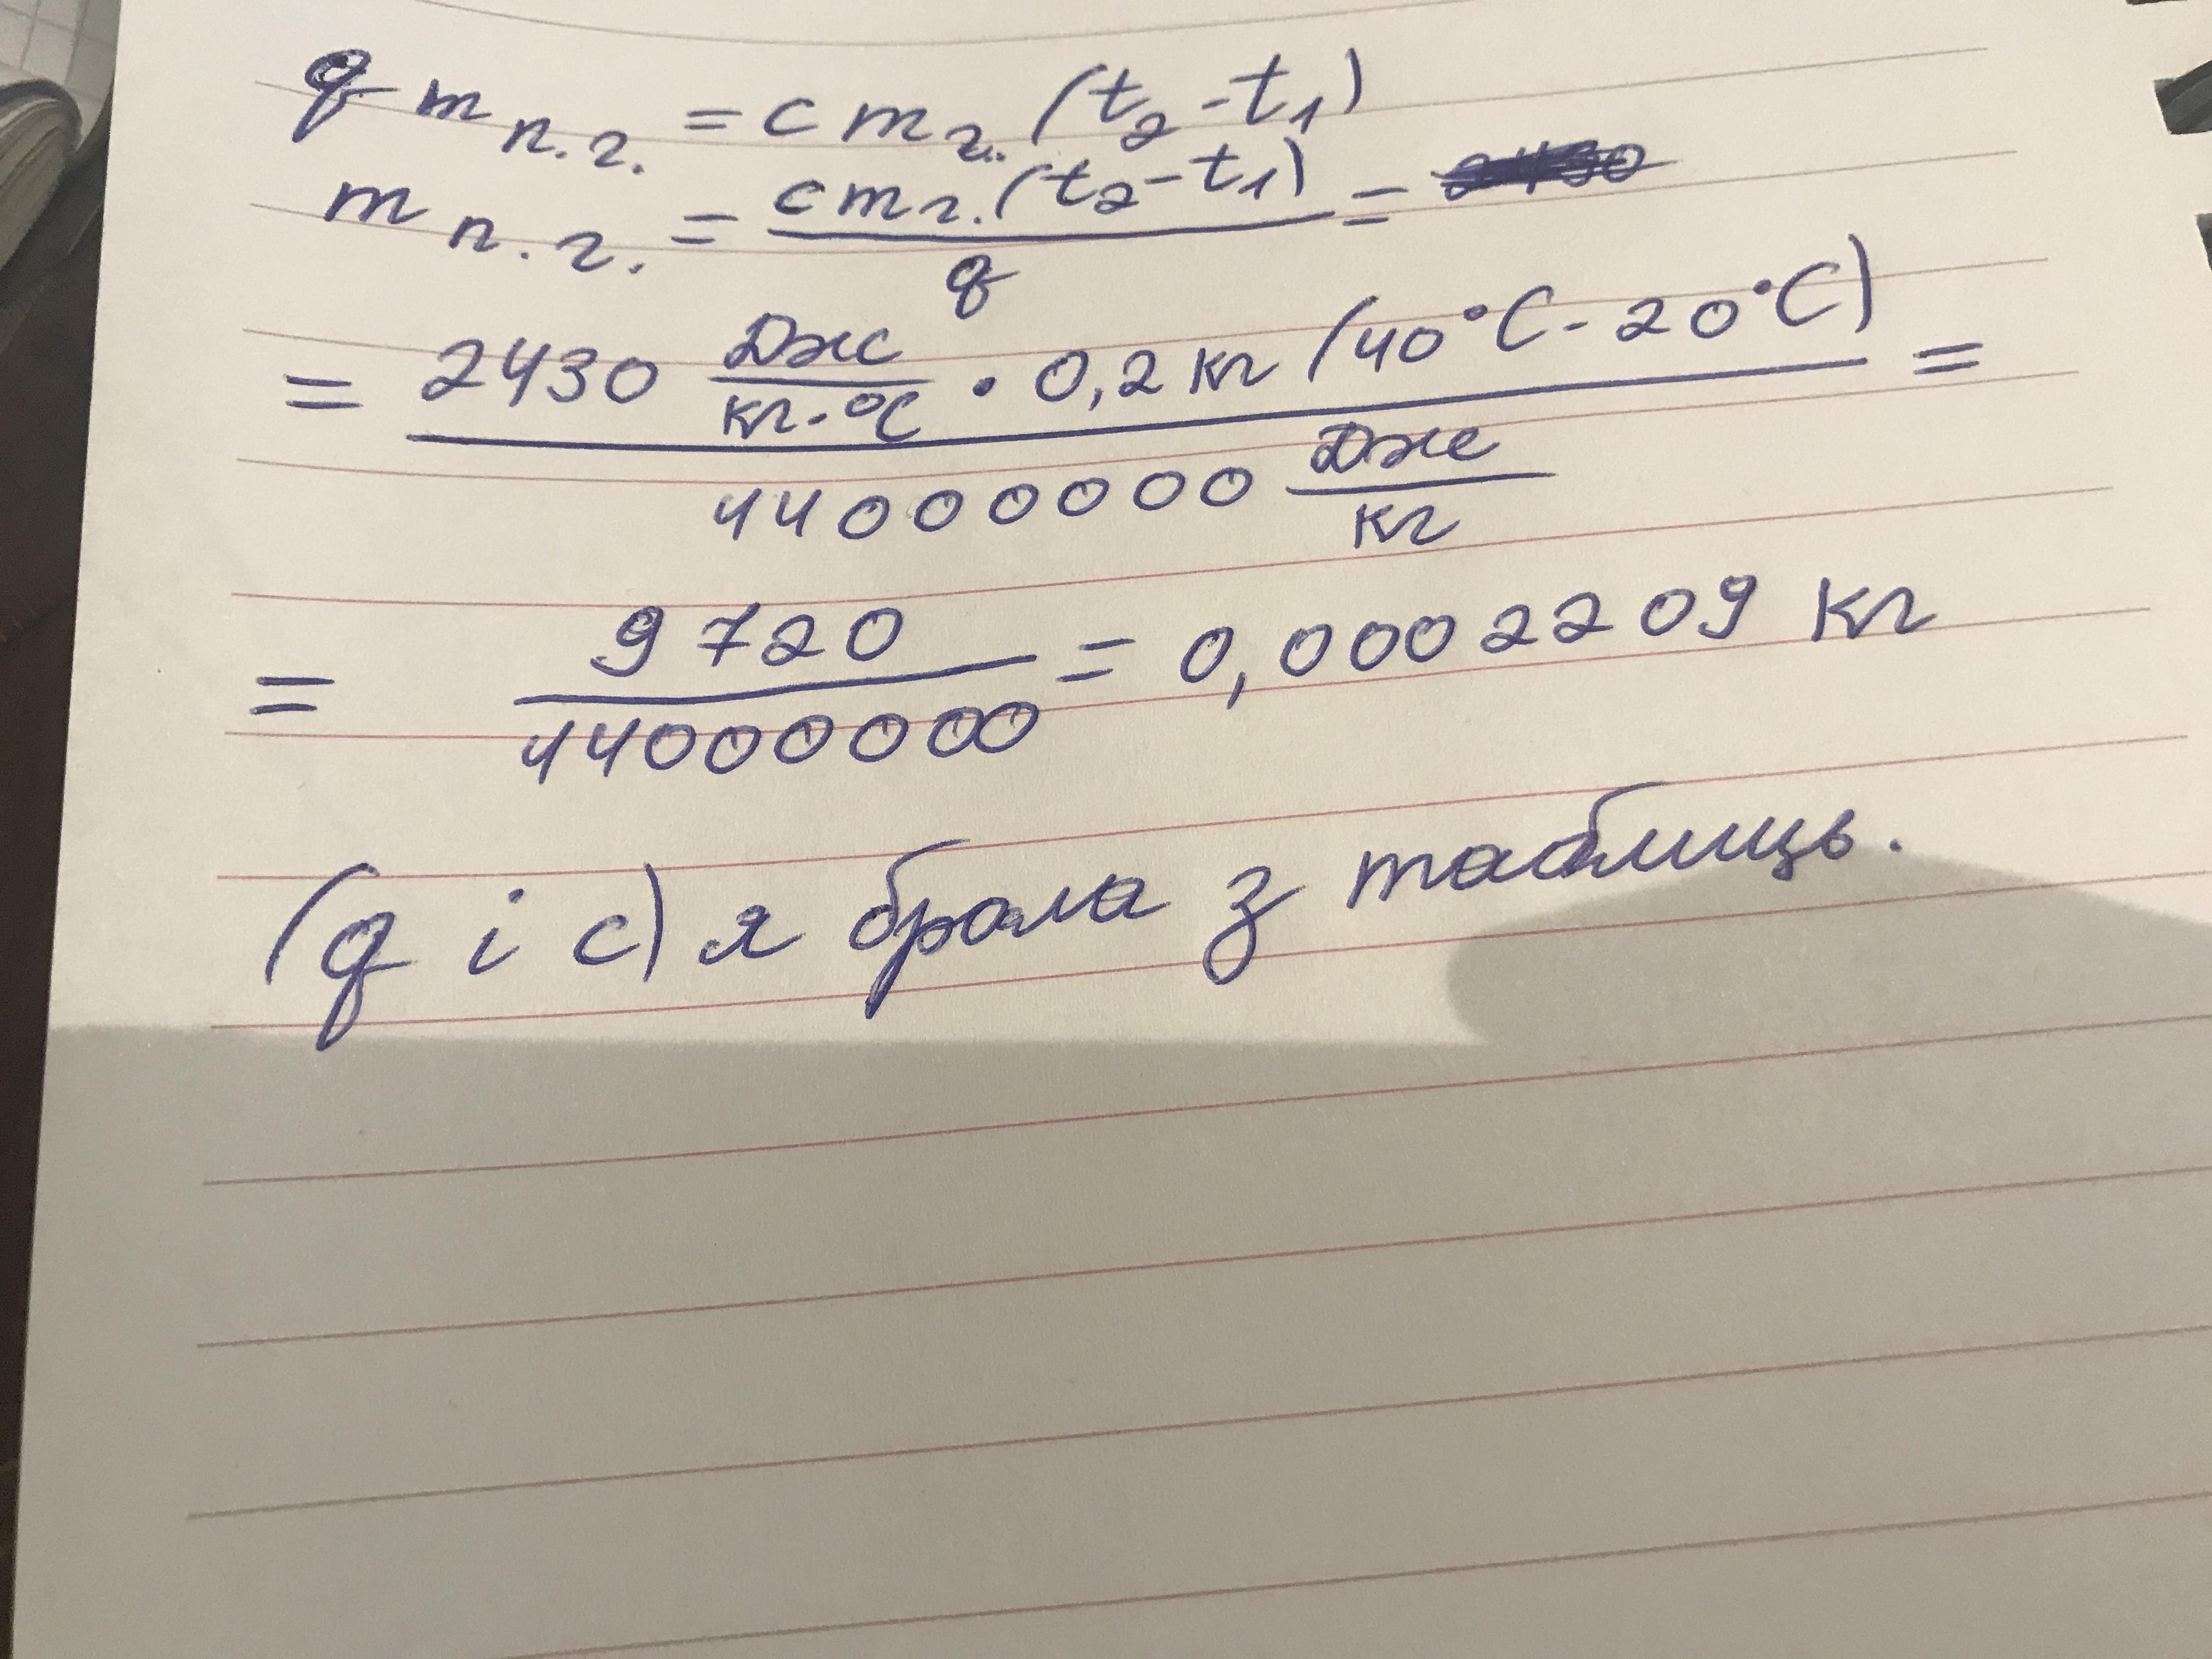 q m п.г. = c m г. (t₂ - t₁)
m п.г. = c m г. (t₂ - t₁) / q =
= 2430 Дж/кг·°C · 0,2 кг (40°C - 20°C) / 44000000 Дж/кг =
= 9720 / 44000000 = 0,0002209 кг
(q і c) я брала з таблиць.